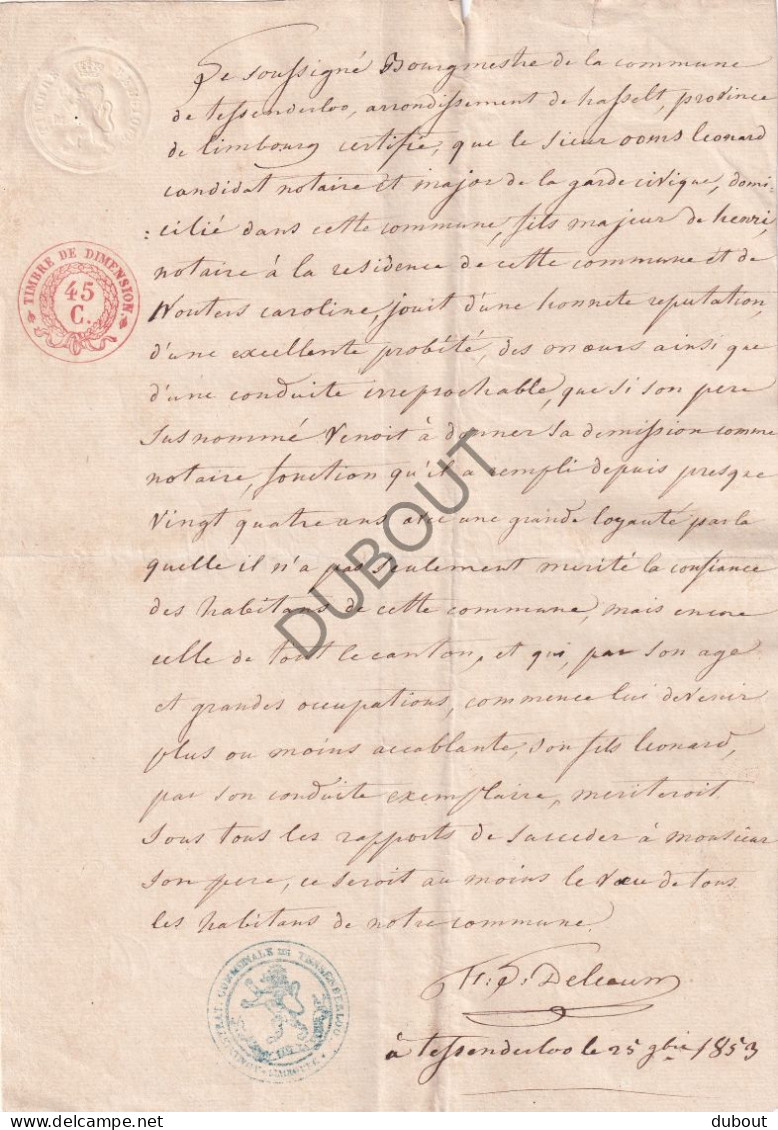 Je soussigné Bourgmestre de la commune
de tessenderloo, arrondissement de hasselt, province
de limbourg certifie, que le sieur ooms leonard
candidat notaire et major de la garde civique, domi-
:cilié dans cette commune, fils majeur de henri,
notaire à la residence de cette commune et de
Wouters caroline, jouit d'une honnete reputation,
d'une excellente probité, des mœurs ainsi que
d'une conduite irreprochable, que si son pere
susnommé venoit à donner sa demission comme
notaire, fonction qu'il a rempli depuis presque
vingt quatre ans avec une grande loyauté par la
quelle il n'a pas seulement merité la confiance
des habitans de cette commune, mais encore
celle de tout le canton, et qui, par son age
et grandes occupations, commence lui devenir
plus ou moins accablante, son fils leonard,
par son conduite exemplaire, meriteroit
sous tous les rapports de succeder à monsieur
son pere, ce seroit au moins le vœu de tous
les habitans de notre commune.
à tessenderloo le 25 9bre 1853
TIMBRE DE DIMENSION.
45
C.
COMMUNALE DE TESSENDERLOO
DUBOUT
dubout